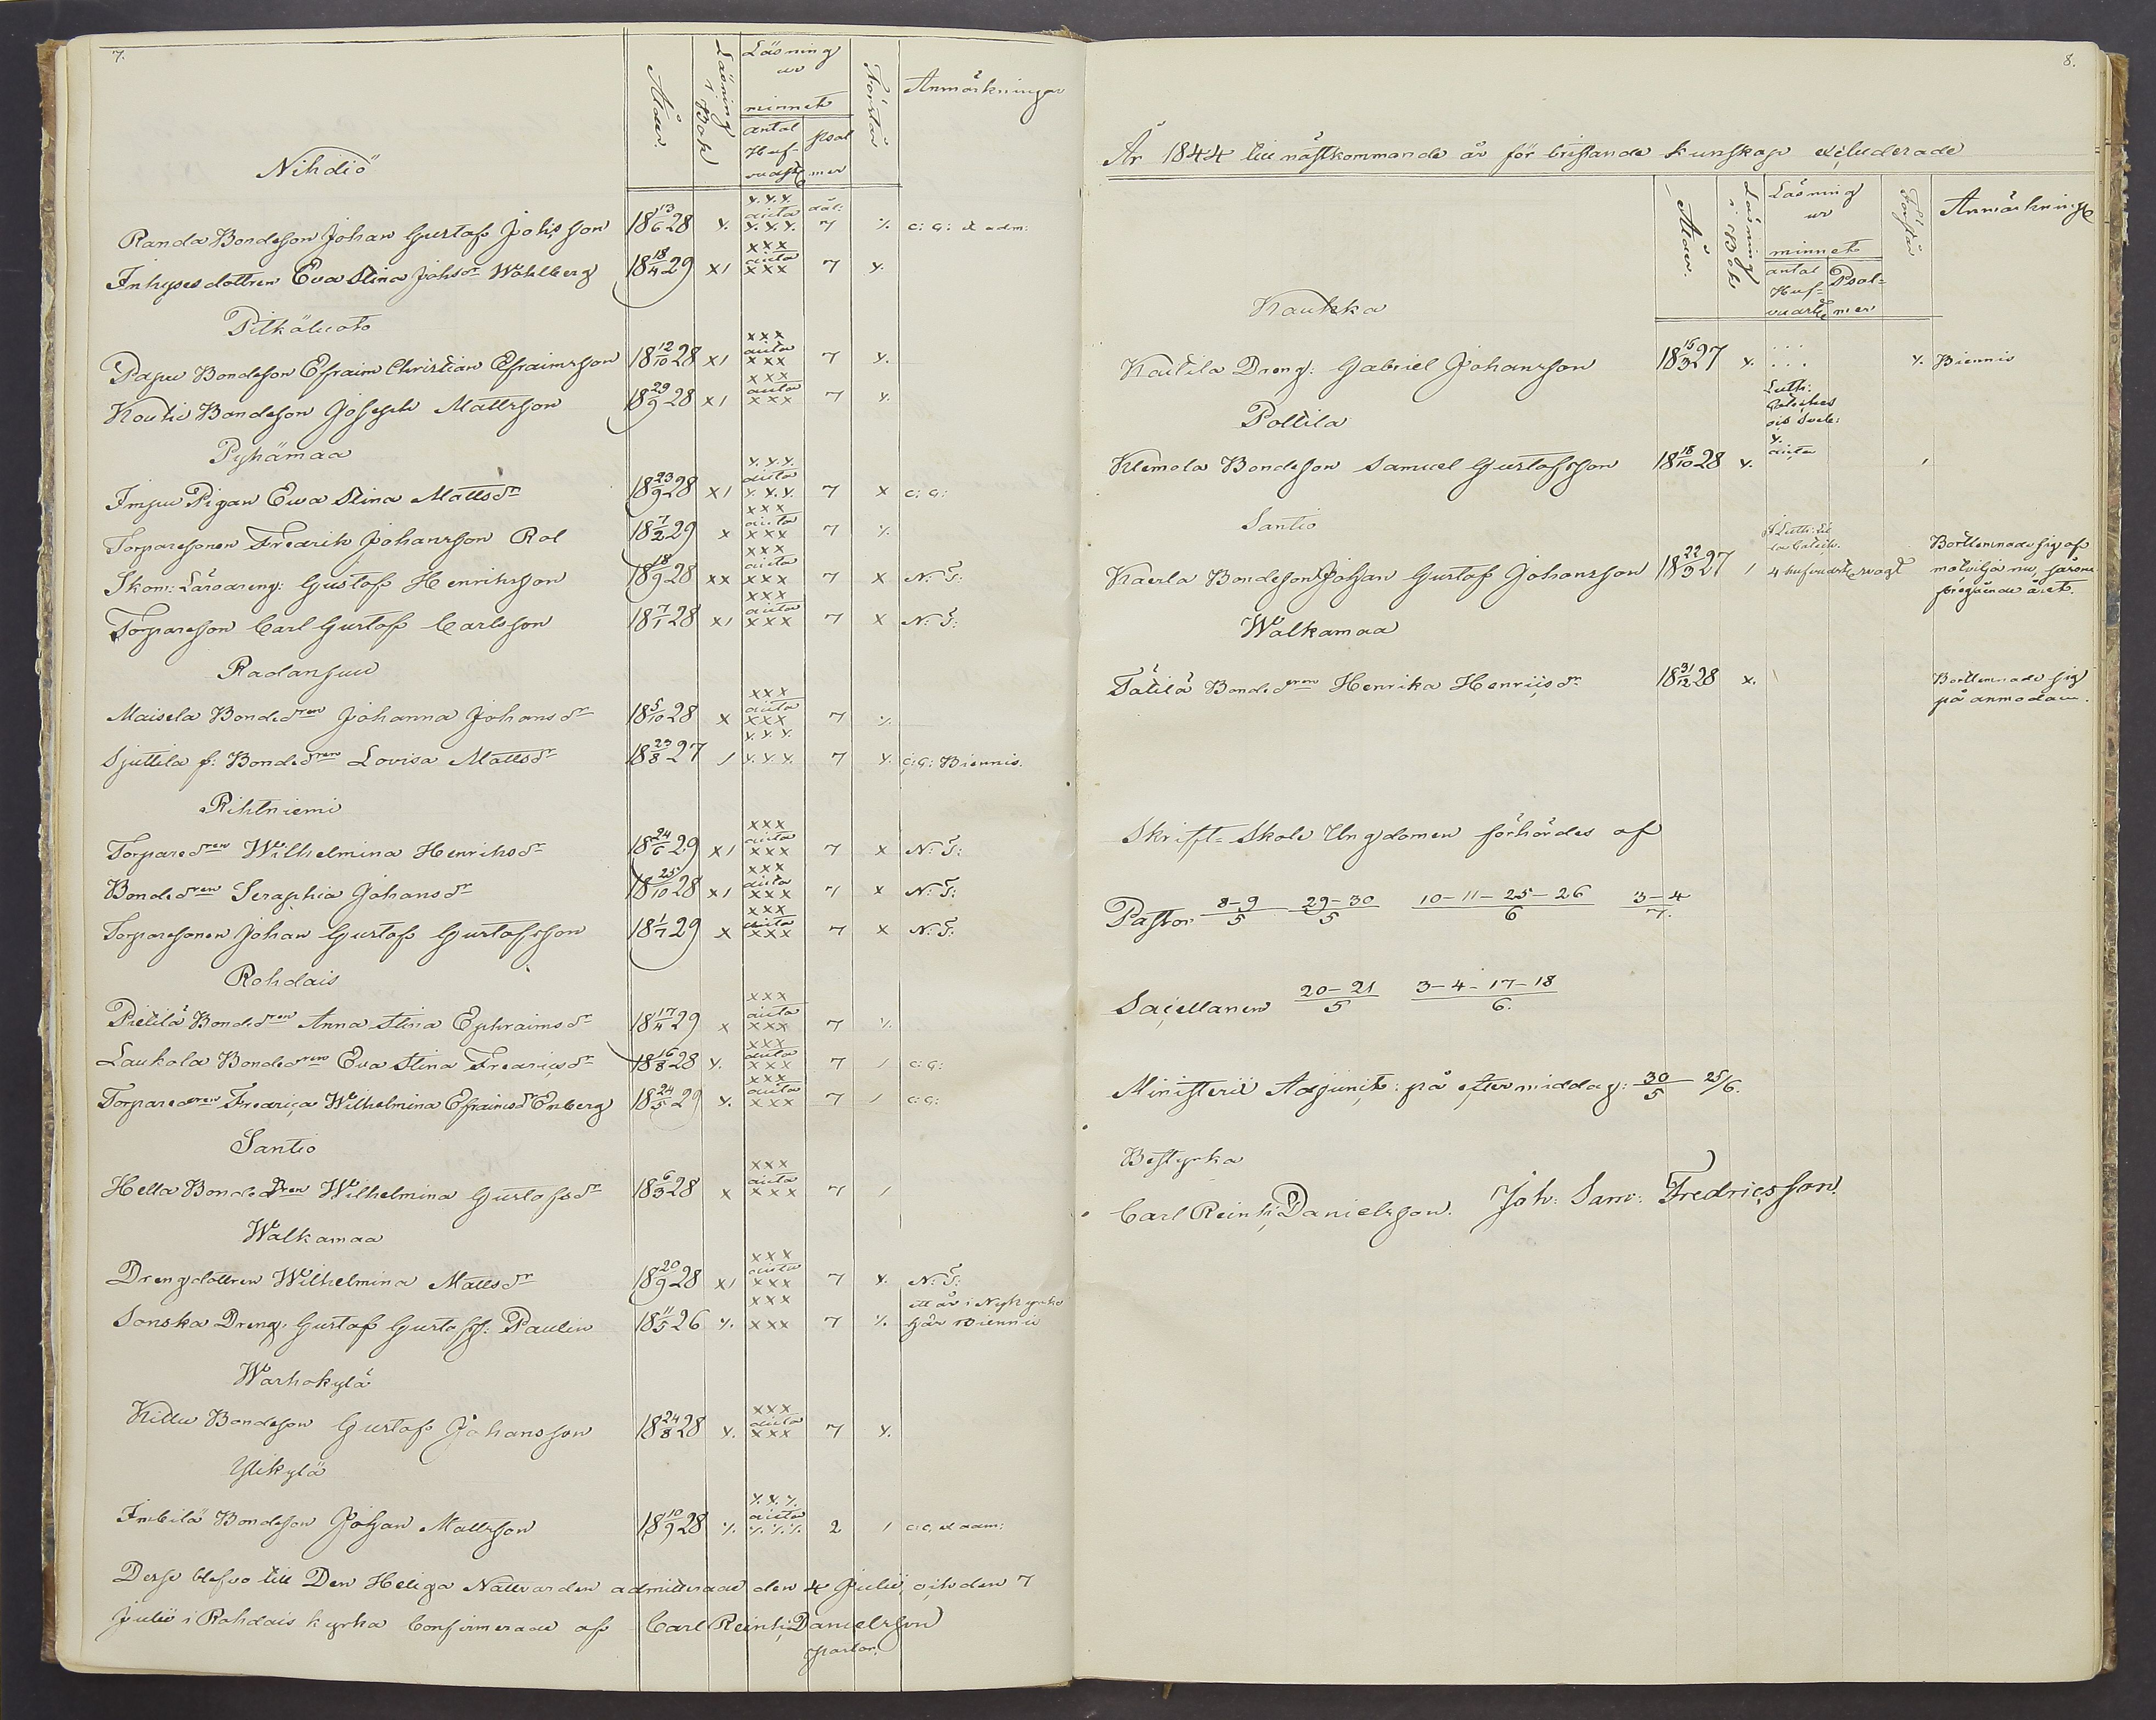 7.
Ålder.
Läsning i Bok
Läsning ur minnet
antal Hufvudst
psalmer
Förstår
Anmärkningar
Nihdiö
Randa Bondeson Johan Gustaf Johsson 18 13/6 28 y. y.y.y. auta y.y.y. 7 ⁒ c: a: et adm:
Inhyses dottren Eva Stina Johsdr Wahlberg 18 18/4 29 x1 xxx auta xxx 7 y.
Pitkäluoto
Papu Bondeson Efraim Christian Efraimsson 18 12/10 28 x1 xxx auta xxx 7 y.
Koutu Bondeson Joseph Mattsson 18 29/9 28 x1 xxx auta xxx 7 y.
Pyhämaa
Impu Pigan Ewa Stina Mattsdr 18 23/9 28 x1 y.y.y. auta y.y.y. 7 x c: a:
Torparesonen Fredrik Johansson Rol 18 7/2 29 x xxx auta xxx 7 ⁒
Skom: Lärodreng: Gustaf Henriksson 18 18/9 28 xx xxx auta xxx 7 x N: T:
Torpareson Carl Gustaf Carlsson 18 7/1 28 x1 xxx auta xxx 7 x N: T:
Radansuu
Maisela Bondedren Johanna Johansdr 18 5/10 28 x xxx auta xxx 7 ⁒
Sjuttila f: Bondedren Lovisa Mattsdr 18 23/8 27 / y.y.y. y.y.y. 7 y. c: a: Biennis.
Rihtniemi
Torparedren Wilhelmina Henriksdr 18 24/6 29 x1 xxx auta xxx 7 x N: T:
Bondedren Seraphia Johansdr 18 25/10 28 x1 xxx auta xxx 7 x N: T:
Torparesonen Johan Gustaf Gustafsson 18 1/7 29 x xxx auta xxx 7 x N: T:
Rohdais
Pietilä Bondedren Anna Stina Ephraimsdr 18 17/4 29 x xxx auta xxx 7 ⁒
Laukola Bondedren Eva Stina Fredricsdr 18 16/8 28 y. xxx auta xxx 7 / c: a:
Torparedren Fredrica Wilhelmina Efraimsdr Enberg 18 24/5 29 y. xxx auta xxx 7 / c: a:
Santio
Hella Bondedren Wilhelmina Gustafsdr 18 6/3 28 x xxx auta xxx 7 /
Walkamaa
Drengdottren Wilhelmina Mattsdr 18 20/9 28 x1 xxx auta xxx 7 y. N: T:
Sonska Dreng: Gustaf Gustafss: Paulin 18 11/5 26 ⁒ xxx xxx 7 ⁒ ett år i Nykyrka här biennis
Warhokylä
Killu Bondeson Gustaf Johansson 18 24/8 28 y. xxx auta xxx 7 y.
Ylikylä
Imbilä Bondeson Johan Mattsson 18 10/9 28 ⁒ ⁒ y. ⁒ auta ⁒ ⁒ ⁒ 2 / c: a, et adm:
Desse blefvo till Den Heliga Nattvarden admitterade den 4 Julii, och den 7
Julii i Rohdais kyrka Confirmerade af Carl Reinh: Danielsson
pastor.
8.
År 1844 till nästkommande år för bristande kunskap excluderade
Ålder.
Läsning i Bok
Läsning ur minnet
antal Hufvudst
Psalmer
Förstår
Anmärkning
Kaukka
Kautila Dreng: Gabriel Johansson 18 15/3 27 y. . . . . . . y. Biennis
Pollila
Luth: Cateches och Sveb:
Klemola Bondeson Samuel Gustafsson 18 18/10 28 y. y. auta
Santio
Kaerla Bondeson Johan Gustaf Johansson 18 22/3 27 / I Luth: lilla Catech. 4 hufvudst svagt Bortlemnade sig af motvilja nu, såsom föregående året.
Walkamaa
Tätilä Bondedren Henrika Henricsdr 18 31/12 28 x. Bortlemnade sig på anmodan.
Skrift-Skole Ungdomen förhördes af
Pastor 8-9/5 29-30/5 10-11-25-26/6 3-4/7.
Sacellanen 20-21/5 3-4-17-18/6.
Ministerii Adjunct: på eftermiddag: 30/5 25/6.
Bestyrka
Carl Reinh: Danielsson. Joh: Sam: Fredricsson.